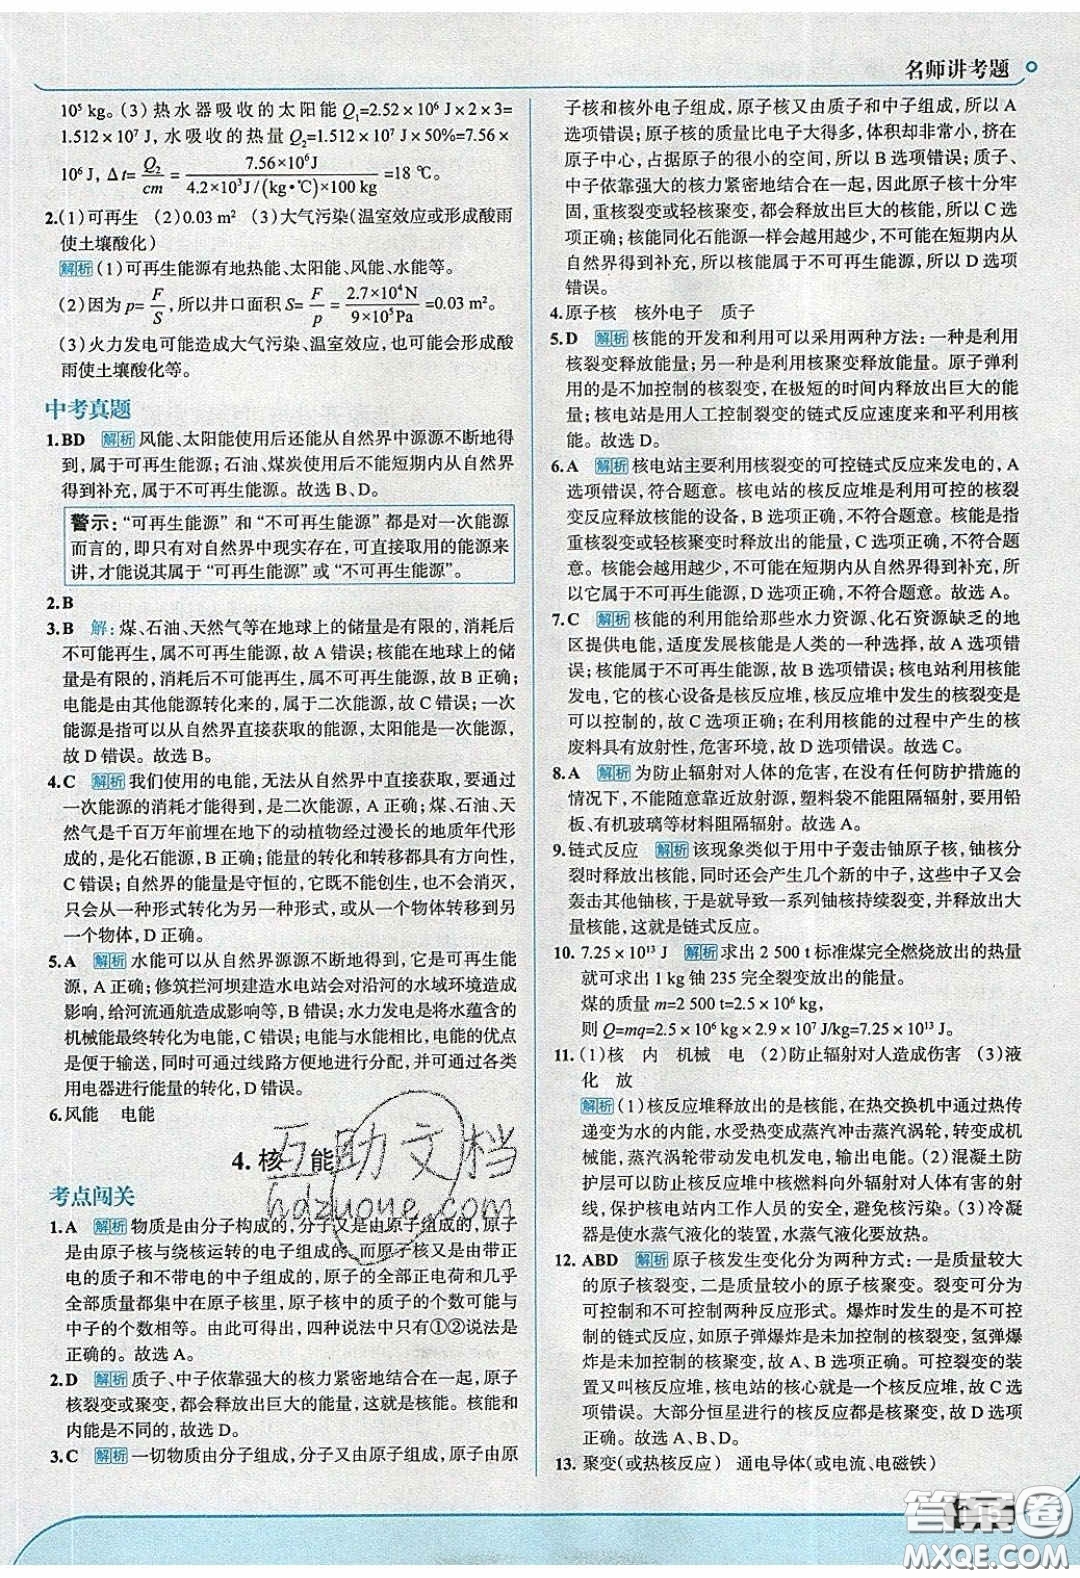 名师讲考题
10⁵ kg。(3)热水器吸收的太阳能Q₁=2.52×10⁶ J×2×3=
1.512×10⁷ J,水吸收的热量Q₂=1.512×10⁷ J×50%=7.56×
10⁶ J, Δt= Q₂/cm = 7.56×10⁶J/4.2×10³J/(kg•℃)×100 kg =18 ℃。
2.(1)可再生 (2)0.03 m² (3)大气污染(温室效应或形成酸雨
使土壤酸化)
解析 (1)可再生能源有地热能、太阳能、风能、水能等。
(2)因为p= F/S ,所以井口面积S= F/p = 2.7×10⁴N/9×10⁵Pa =0.03 m²。
(3)火力发电可能造成大气污染、温室效应,也可能会形成酸
雨使土壤酸化等。
中考真题
1.BD 解析 风能、太阳能使用后还能从自然界中源源不断地得
到,属于可再生能源;石油、煤炭使用后不能短期内从自然界
得到补充,属于不可再生能源。故选B、D。
警示:“可再生能源”和“不可再生能源”都是对一次能源
而言的,即只有对自然界中现实存在,可直接取用的能源来
讲,才能说其属于“可再生能源”或“不可再生能源”。
2.B
3.B 解:煤、石油、天然气等在地球上的储量是有限的,消耗后
不可能再生,属于不可再生能源,故A错误;核能在地球上的储
量是有限的,消耗后不可能再生,属不可再生能源,故B正确;
电能是由其他能源转化来的,属于二次能源,故C错误;一次
能源是指可以从自然界直接获取的能源,太阳能是一次能源,
故D错误。故选B。
4.C 解析 我们使用的电能,无法从自然界中直接获取,要通过
一次能源的消耗才能得到,是二次能源,A正确;煤、石油、天
然气是千百万年前埋在地下的动植物经过漫长的地质年代形
成的,是化石能源,B正确;能量的转化和转移都具有方向性,
C错误;自然界的能量是守恒的,它既不能创生,也不会消灭,
只会从一种形式转化为另一种形式,或从一个物体转移到另
一个物体,D正确。
5.A 解析 水能可以从自然界源源不断地得到,它是可再生能
源,A正确;修筑拦河坝建造水电站会对沿河的水域环境造成
影响,给河流通航造成影响等,B错误;水力发电是将水蕴含的
机械能最终转化为电能,C错误;电能与水能相比,电能的优点
是便于输送,同时可通过线路方便地进行分配,并可对各类
用电器进行能量的转化,D错误。
6.风能 电能
4.核 能
考点闯关
1.A 解析 物质是由分子构成的,分子又是由原子组成的,原子
是由原子核与绕核运转的电子组成的,而原子核又是由带正
电的质子和不带电的中子组成的,原子的全部正电荷和几乎
全部质量都集中在原子核里,原子核中的质子的个数可能与
中子的个数相等。由此可得出,四种说法中只有①②说法是
正确的。故选A。
2.D 解析 质子、中子依靠强大的核力紧密地结合在一起,原子
核裂变或聚变,都会释放出巨大的能量,即核能。核能和
内能是不同的,故选D。
3.C 解析 一切物质由分子组成,分子又由原子组成,原子由原
子核和核外电子组成,原子核又由质子和中子组成,所以A
选项错误;原子核的质量比电子大得多,体积却非常小,挤在
原子中心,占据原子的很小的空间,所以B选项错误;质子、
中子依靠强大的核力紧密地结合在一起,因此原子核十分牢
固,重核裂变或轻核聚变,都会释放出巨大的核能,所以C选
项正确;核能同化石能源一样会越用越少,不可能在短期内从
自然界得到补充,所以核能属于不可再生能源,所以D选项错
误。
4.原子核 核外电子 质子
5.D 解析 核能的开发和利用可以采用两种方法:一种是利用
核裂变释放能量;另一种是利用核聚变释放能量。原子弹利
用的是不加控制的核裂变,在极短的时间内释放出巨大的能
量;核电站是用人工控制裂变的链式反应速度来和平利用核
能。故选D。
6.A 解析 核电站主要利用核裂变的可控链式反应来发电的,A
选项错误,符合题意。核电站的核反应堆是利用可控的核裂
变反应释放核能的设备,B选项正确,不符合题意。核能是指
重核裂变或轻核聚变时释放出的能量,C选项正确,不符合题
意。核能会越用越少,不可能在短期内从自然界得到补充,所
以它属于不可再生能源,D选项正确,不符合题意。故选A。
7.C 解析 核能的利用能给那些水力资源、化石资源缺乏的地
区提供电能,适度发展核能是人类的一种选择,故A选项错
误;核能属于不可再生能源,故B选项错误;核电站利用核能
发电,它的核心设备是核反应堆,核反应堆中发生的核裂变是
可以控制的,故C选项正确;在利用核能的过程中产生的核
废料具有放射性,危害环境,故D选项错误。故选C。
8.A 解析 为防止辐射对人体的危害,在没有任何防护措施的
情况下,不能随意靠近放射源,塑料袋不能阻隔辐射,要用铅
板、有机玻璃等材料阻隔辐射。故选A。
9.链式反应 解析 该现象类似于用中子轰击铀原子核,铀核分
裂时释放出核能,同时还会产生几个新的中子,这些中子又会
轰击其他铀核,于是就导致一系列铀核持续裂变,并释放出
大量核能,这就是链式反应。
10. 7.25×10¹³ J 解析 求出2 500 t标准煤完全燃烧放出的热量
就可求出1 kg铀235完全裂变放出的能量。
煤的质量m=2 500 t=2.5×10⁶ kg,
则Q=mq=2.5×10⁶ kg×2.9×10⁷ J/kg=7.25×10¹³ J。
11. (1)核 内 机械 电 (2)防止辐射对人造成伤害 (3)液
化 放
解析 (1)核反应堆释放出的是核能,在热交换机中通过热传
递变为水的内能,水受热变成蒸汽冲击蒸汽涡轮,转变成机
械能,蒸汽涡轮带动发电机发电,输出电能。(2)混凝土防
护层可以防止核反应堆中核燃料向外辐射有害人体的射
线,保护核电站内工作人员的安全,避免核污染。(3)冷凝
器是使水蒸气液化的装置,水蒸气液化要放热。
12. ABD 解析 原子核发生变化分为两种方式:一是质量较大
的原子核裂变,二是质量较小的原子核聚变。裂变可分为
可控制和不可控制两种反应形式。爆炸时发生的是不可控
制的链式反应,如原子弹爆炸是未加控制的核裂变,氢弹爆
炸是未加控制的核聚变,故C选项正确。可控裂变的装
置又叫核反应堆,核电站的核心就是核反应堆,故B选项
错误。大部分恒星进行的核反应都是核聚变,故D选项
正确。故选A、B、D。
13. 聚变(或热核反应) 通电导体(或电流、电磁铁)
互助文档
hdzuone.com
答案卷
MXQE.COM